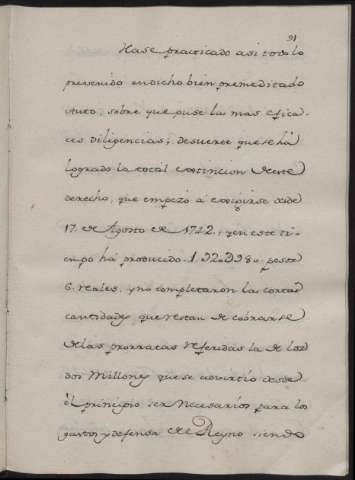 91
Hase practicado asi todo lo
prevenido en dicho bien premeditado
Auto, sobre que puse las mas efica-
ces diligencias; de suerte que se ha
logrado la total extincion de este
derecho, que empezó a exigirse desde
17. de Agosto de 1742., y en este ti-
empo ha producido pesos
6. reales, y no completaron las cortas
cantidades que restan de cobrarse
de las prorratas referidas la de los
dos Millones que se advirtio desde
el principio ser necesarios para los
gastos y defensa de Reyno siendo